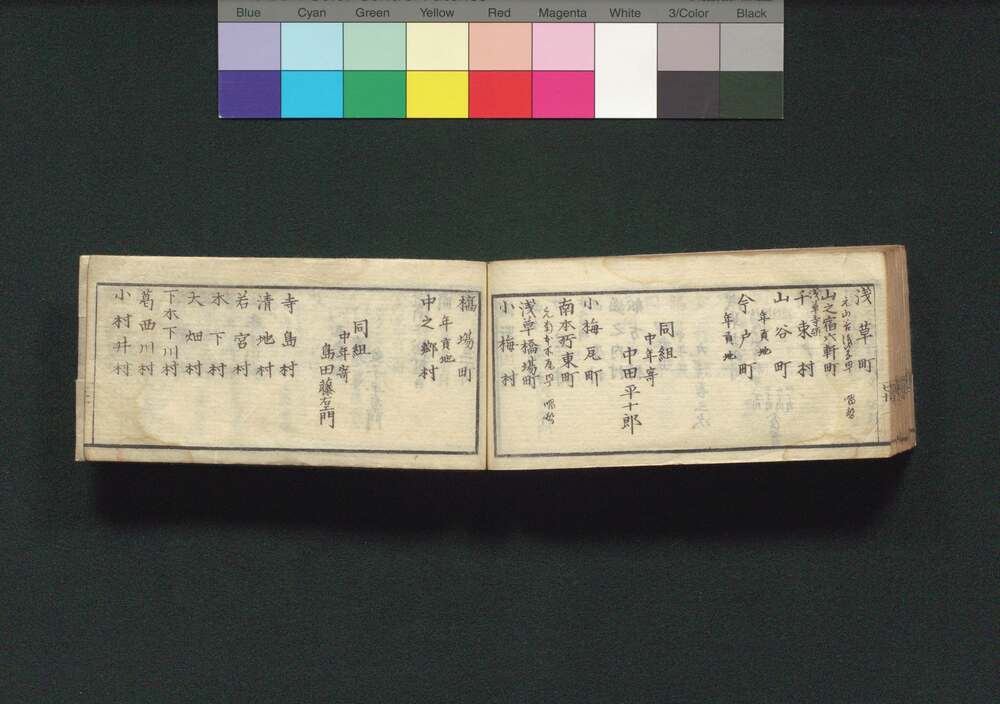 Blue Cyan Green Yellow Red Magenta White 3/Color Black
浅草町
山之宿六軒町
浅草寺領
千束村
山谷町
年貢地
今戸町
年貢地
同組
中年寄
中田平十郎
小梅瓦町
南本所東町
浅草橋場町
小梅村
橋場町
年貢地
中之郷村
同組
中年寄
島田藤左衛門
寺島村
清地村
若宮村
木下村
大畑村
下木下川村
葛西川村
小村井村